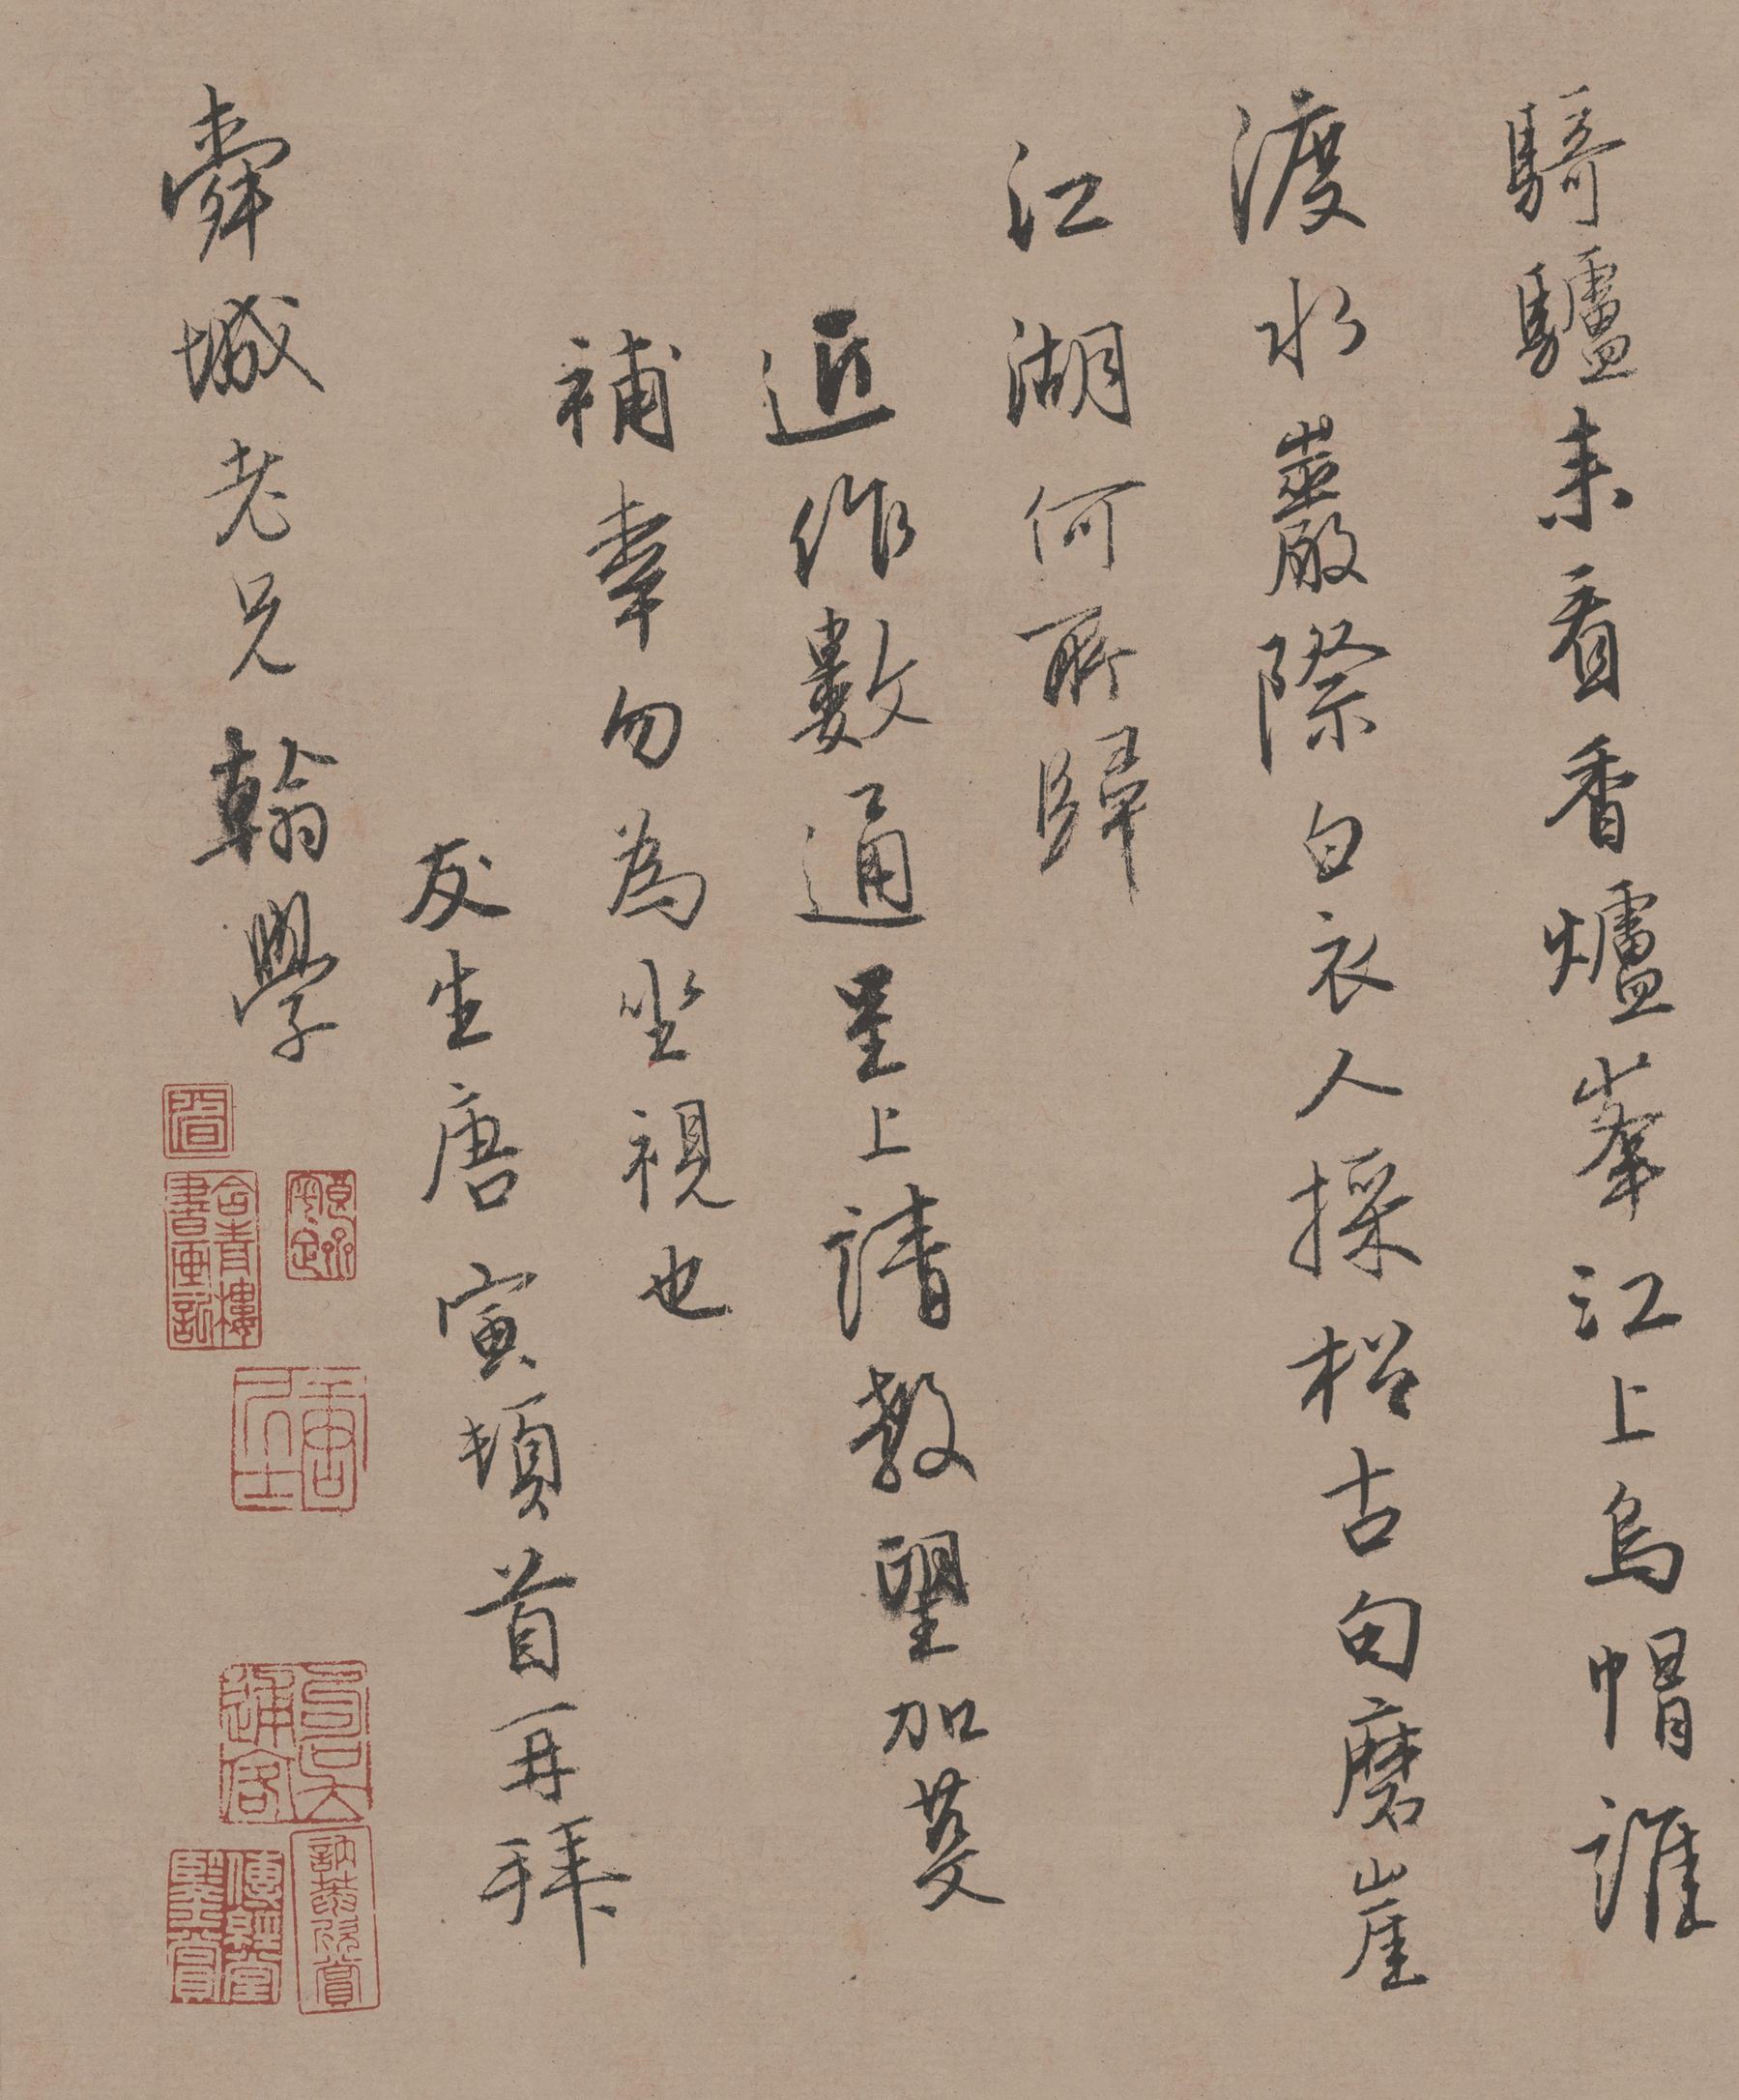 騎驢來看香爐峯江上烏帽誰
渡水巖際白衣人採松古句磨崖
江湖何所歸
近作數通呈上請教望加芟
補幸勿為坐視也
友生唐寅頓首再拜
舜城老兄翰學